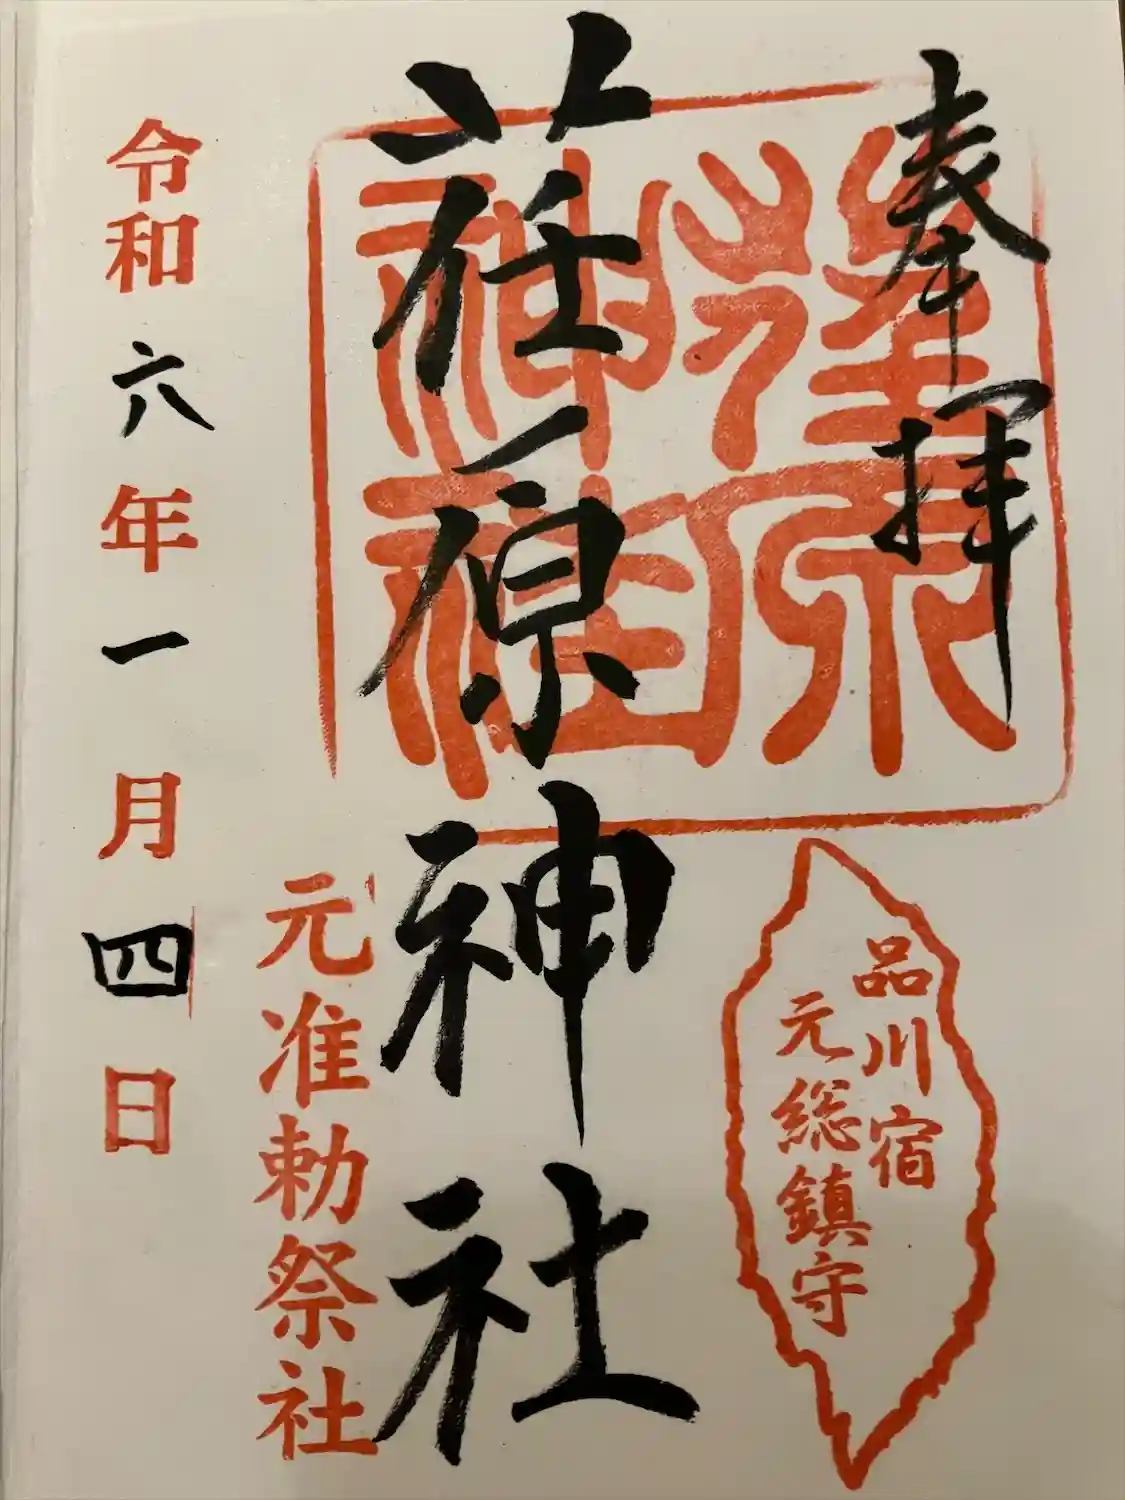 奉拝
品川宿
元総鎮守
荏原神社
元准勅祭社
令和六年一月四日